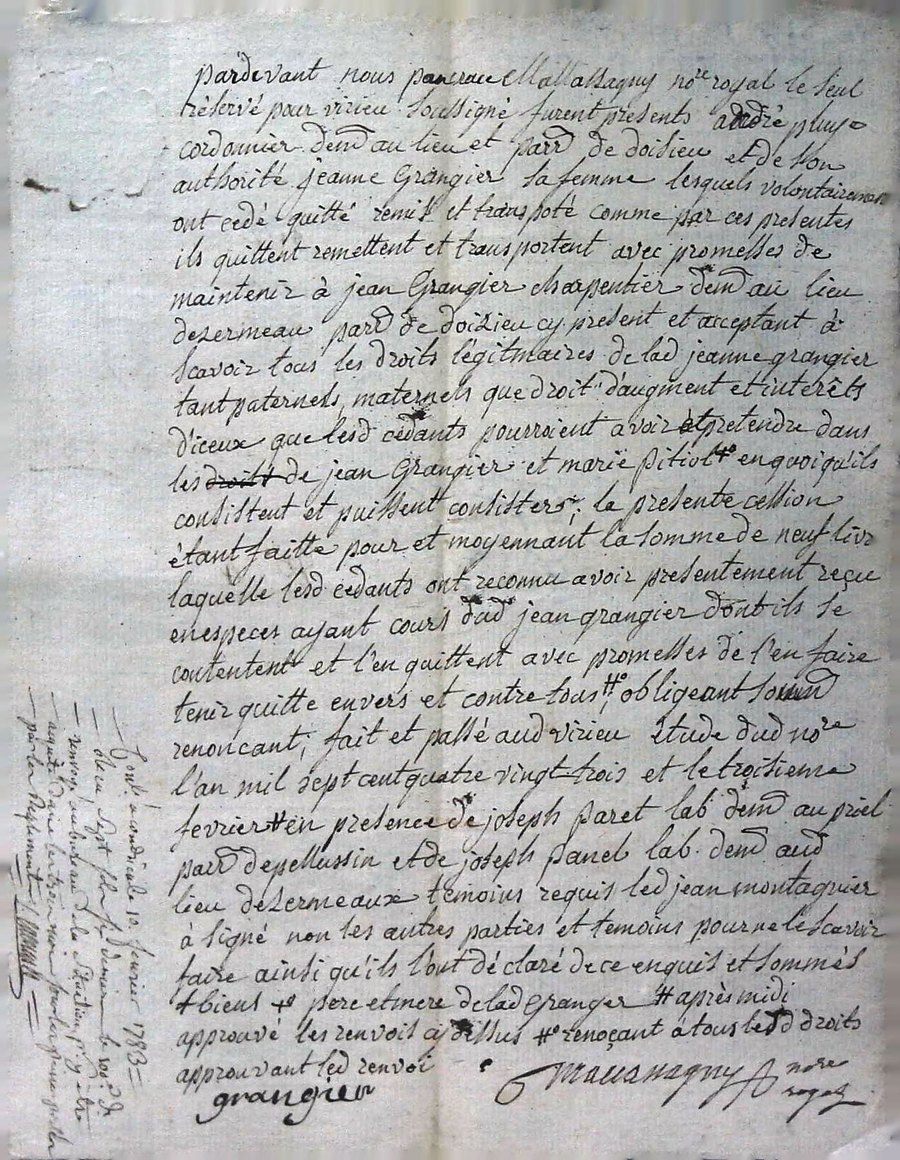 pardevant nous pancrace Mattassagny no.re royal le seul
réservé pour virieu soussigné furent presents andré pluy
cordonnier demt au lieu et parr de doisieu et de son
authorité jeanne Grangier sa femme lesquels volontairement
ont cedé quitté remis et transpoté comme par ces presentes
ils quittent remettent et transportent avec promesses de
maintenir à jean Grangier charpentier demt au lieu
dezermeau parr de doizieu cy present et acceptant à
scavoir tous les droits légitimaires de lad jeanne grangier
tant paternels, maternels que droit d'augment et interêts
d'iceux que lesd cedants pourroient avoir et pretendre dans
les droits de jean Grangier et marie pitiot en quoi qu'ils
consistent et puissent consister; la presente cession
étant faitte pour et moyennant la somme de neuf livr
laquelle lesd cedants ont reconnu avoir presentement reçu
en especes ayant cours dud jean grangier dont ils se
contentent et l'en quittent avec promesses de l'en faire
tenir quitte envers et contre tous, obligeant
renoncant, fait et passé aud virieu étude dud nore
l'an mil sept cent quatre vingt trois et le troisieme
fevrier # en presence de joseph paret lab demt au priel
parr de pellussin et de joseph panel lab. demt aud
lieu dezermeaux temoins requis led jean montagnier
à signé non les autres parties et temoins pour ne le scavoir
faire ainsi qu'ils l'ont déclaré de ce enquis et sommés
+ biens # pere et mere de lad Granger # après midi
approuvé les renvois cy dessus # renoçant à tous lesd droits
approuvant led renvoi
grangier
Mattassagny nore
royal
fevrier 1783
reçu sept
renvoyé au bureau de
par les Reglements